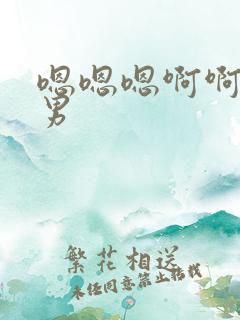 嗯嗯嗯啊啊
男
繁花相送
未经同意禁止转载